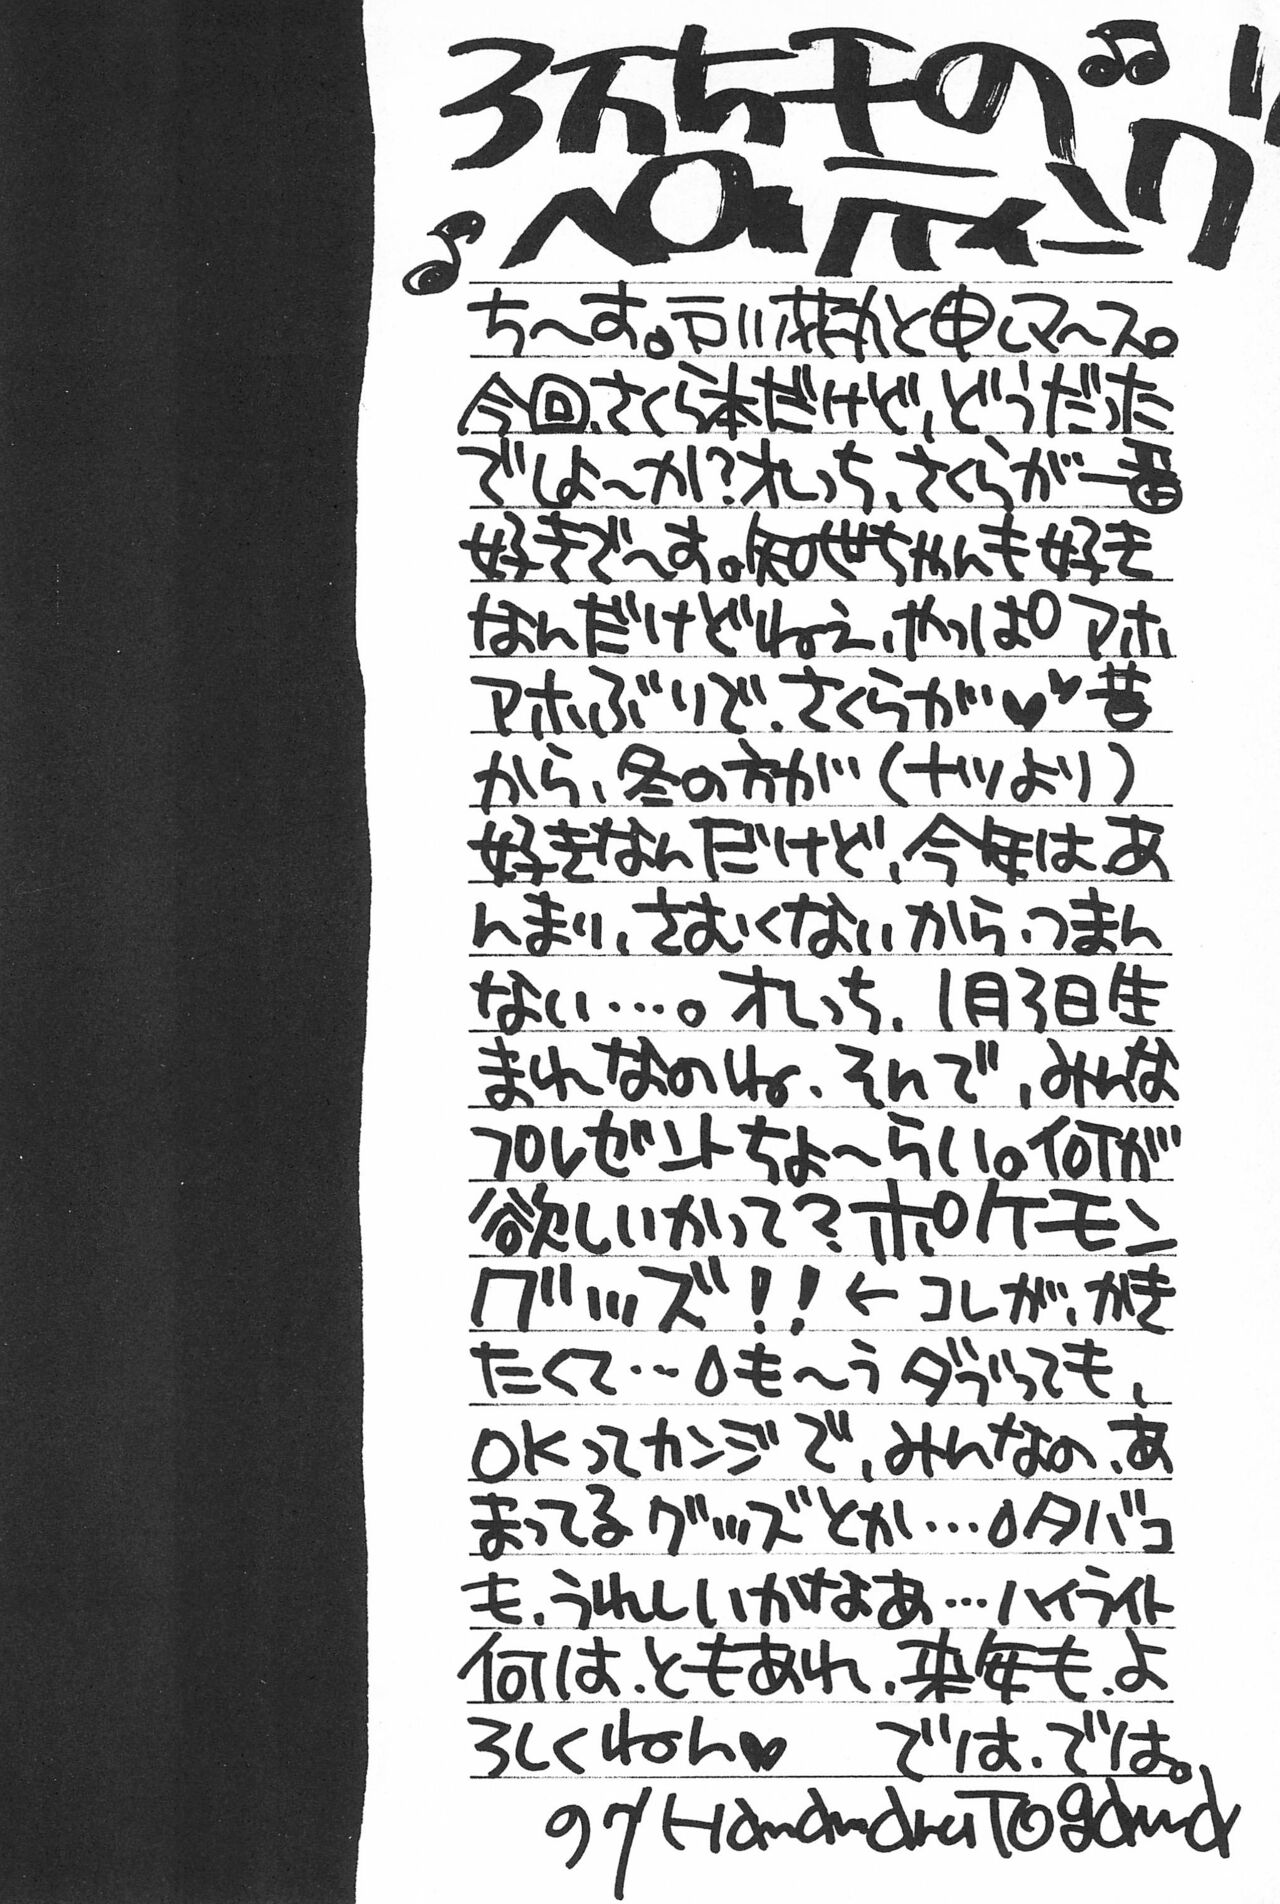 ち〜す。戸川花丸と申しマ〜ス。
今回、さくら本だけど、どうだった
でしょ〜か?オレっち、さくらが一番
好きで〜す。知世ちゃんも好き
なんだけどねえ、やっぱ アホ
アホぶりで、さくらが♥♥昔
から、冬の方が(ナツより)
好きなんだけど、今年は、あ
んまり、さむくないから、つまん
ない…。オレっち、1月3日生
まれなのね、そんで、みんな
プレゼントちょ〜らい。何が
欲しいかって?ポケモン
グッズ!!←コレが、かき
たくて…。も〜うダブっても、
OKってカンジで、みんなの、あ
まってるグッズとか…。タバコ
も、うれしいかなぁ…ハイライト
何は、ともあれ、来年も、よ
ろしくねん♥ では、では。
97